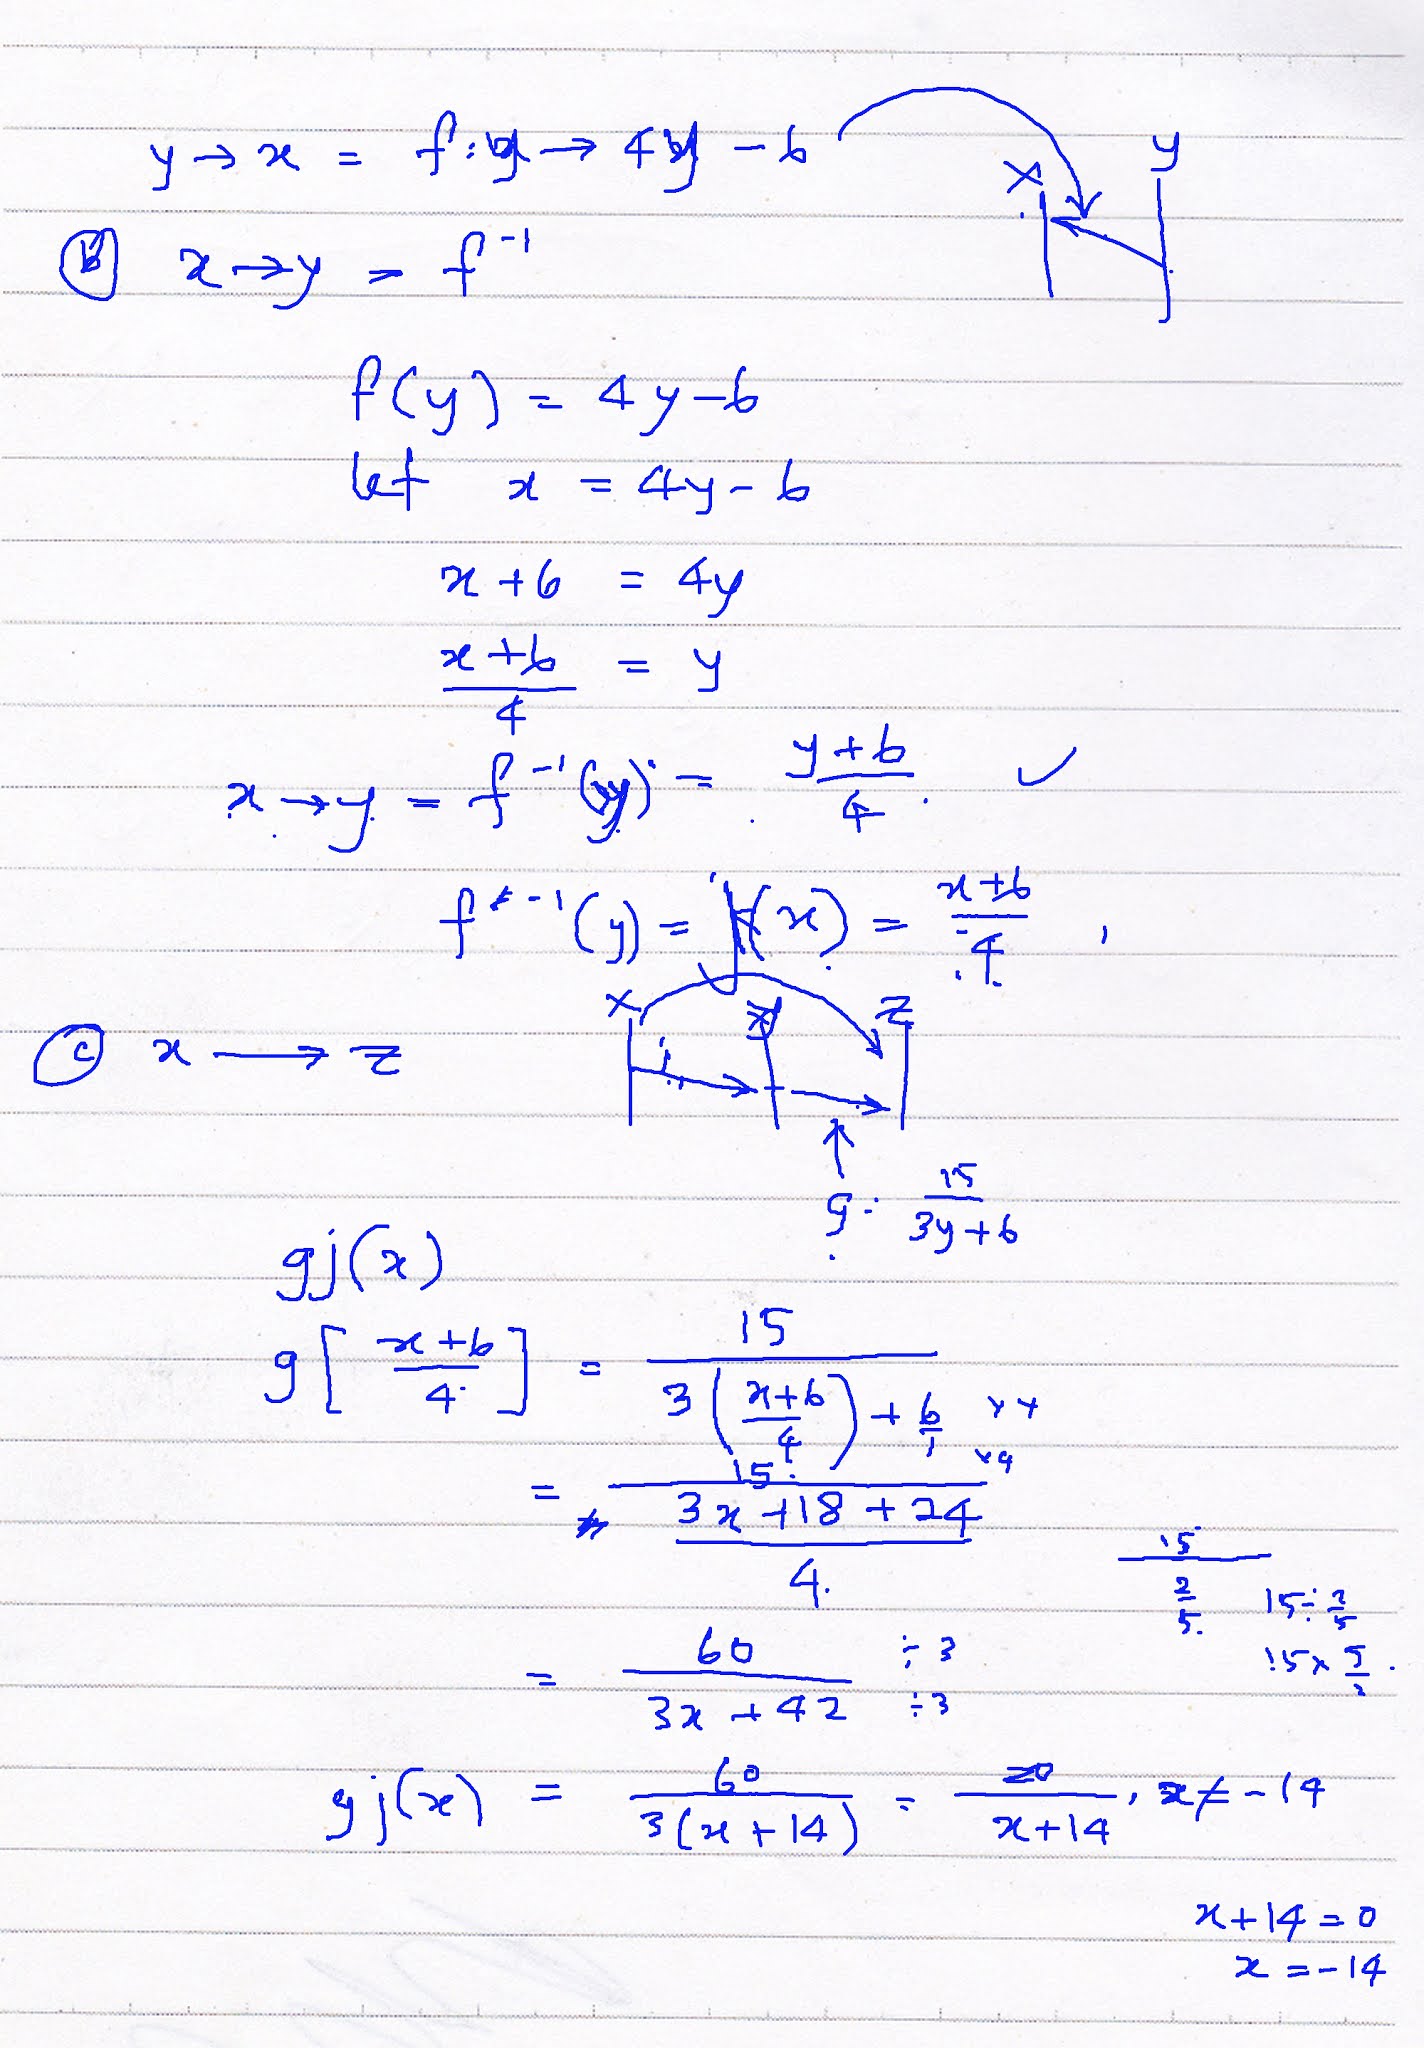 y → x = f : y → 4y - 6
x y
(b) x → y = f⁻¹
f(y) = 4y - 6
let x = 4y - 6
x + 6 = 4y
(x + 6)/4 = y
x → y = f⁻¹(y) = (y + 6)/4 . ✓
f⁻¹(y) = j(x) = (x + 6)/4 ,
x y z
(c) x ⟶ z
j
g : 15/(3y + 6)
gj(x)
g[(x + 6)/4] = 15/(3((x + 6)/4) + 6/1) ×4
×4
= 15/((3x + 18 + 24)/4)
15/(2/5) 15 ÷ 2/5
15 × 5/2
= 60/(3x + 42) ÷3
÷3
gj(x) = 60/(3(x + 14)) = 20/(x + 14) , x ≠ -14
x + 14 = 0
x = -14